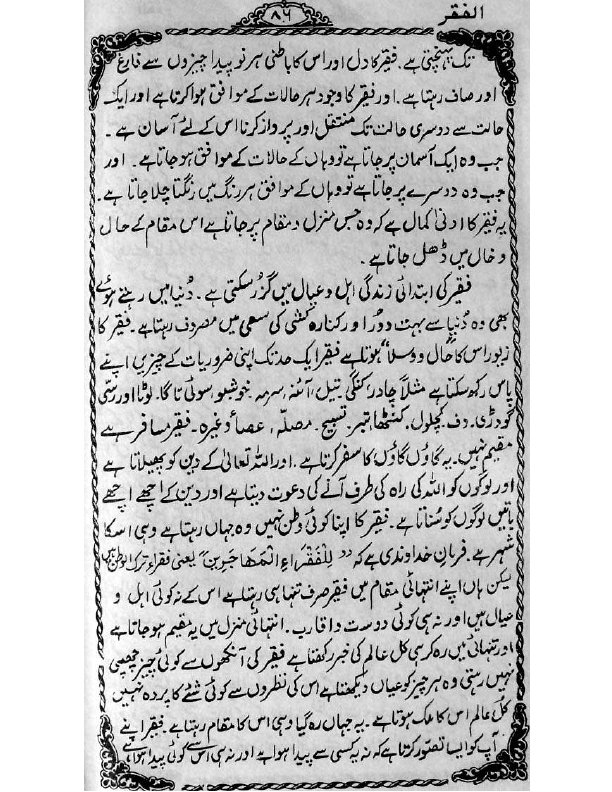 الفقر
۸۶
تک پہنچتی ہے۔ فقیر کا دل اور اس کا باطنی ہر نو پیدا چیزوں سے فارغ
اور صاف رہتا ہے۔ اور فقیر کا وجود ہر حالات کے موافق ہوا کرتا ہے اور ایک
حالت سے دوسری حالت تک منتقل اور پرواز کرنا اس کے لئے آسان ہے۔
جب وہ ایک آسمان پر جاتا ہے تو وہاں کے حالات کے موافق ہو جاتا ہے۔ اور
جب وہ دوسرے پر جاتا ہے تو وہاں کے موافق ہر رنگ میں رنگتا چلا جاتا ہے۔
یہ فقیر کا ادنیٰ کمال ہے کہ وہ جس منزل و مقام پر جاتا ہے اس مقام کے حال
و خال میں ڈھل جاتا ہے۔
فقیر کی ابتدائی زندگی اہل و عیال میں گزر سکتی ہے۔ دُنیا میں رہتے ہوئے
بھی وہ دُنیا سے بہت دور اور کنارہ کشی کی سعی میں مصروف رہتا ہے۔ فقیر کا
زیور اس کا حال و وسلا" ہوتا ہے فقیر ایک حد تک اپنی ضروریات کے چیزیں اپنے
پاس رکھ سکتا ہے مثلاً چادر، کنگی، تیل، آئنہ، سرمہ، خوشبو، سوئی تاگا۔ لوٹا اور رسّی
گودڑی۔ دف، کچلول، کنٹھا، تبر، تسبیح، مصلّہ، عصا وغیرہ۔ فقیر مسافر ہے
مقیم نہیں۔ یہ گاؤں گاؤں کا سفر کرتا ہے۔ اور اللہ تعالیٰ کے دین کو پھیلاتا ہے
اور لوگوں کو اللہ کی راہ کی طرف آنے کی دعوت دیتا ہے اور دین کے اچھے اچھے
باتیں لوگوں کو سُناتا ہے۔ فقیر کا اپنا کوئی وطن نہیں وہ جہاں رہتا ہے وہی اسکا
شہر ہے۔ فرمانِ خداوندی ہے کہ "لِلْفُقَرَاءِ الْمُهَاجِرِین" یعنی فقراء ترک الوطن ہیں
لیکن ہاں اپنے انتہائی مقام میں فقیر صرف تنہا ہی رہتا ہے اس کے نہ کوئی اہل و
خیال ہیں اور نہ ہی کوئی دوست و اقارب۔ انتہائی منزل میں یہ مقیم ہو جاتا ہے
اور تنہائی میں رہ کر ہی کل عالم کی خبر رکھتا ہے فقیر کی آنکھوں سے کوئی چیز چھپی
نہیں رہتی وہ ہر چیز کو عیاں دیکھتا ہے اس کی نظروں سے کوئی شئے کا پردہ نہیں
کُل عالم اس کا ملک ہوتا ہے۔ یہ جہاں رہ گیا وہی اس کا مقام رہتا ہے۔ فقیر اپنے
آپ کو ایسا تصوّر کرتا ہے کہ نہ یہ کسی سے پیدا ہوا ہے اور نہ ہی اس سے کوئی پیدا ہوا ہے